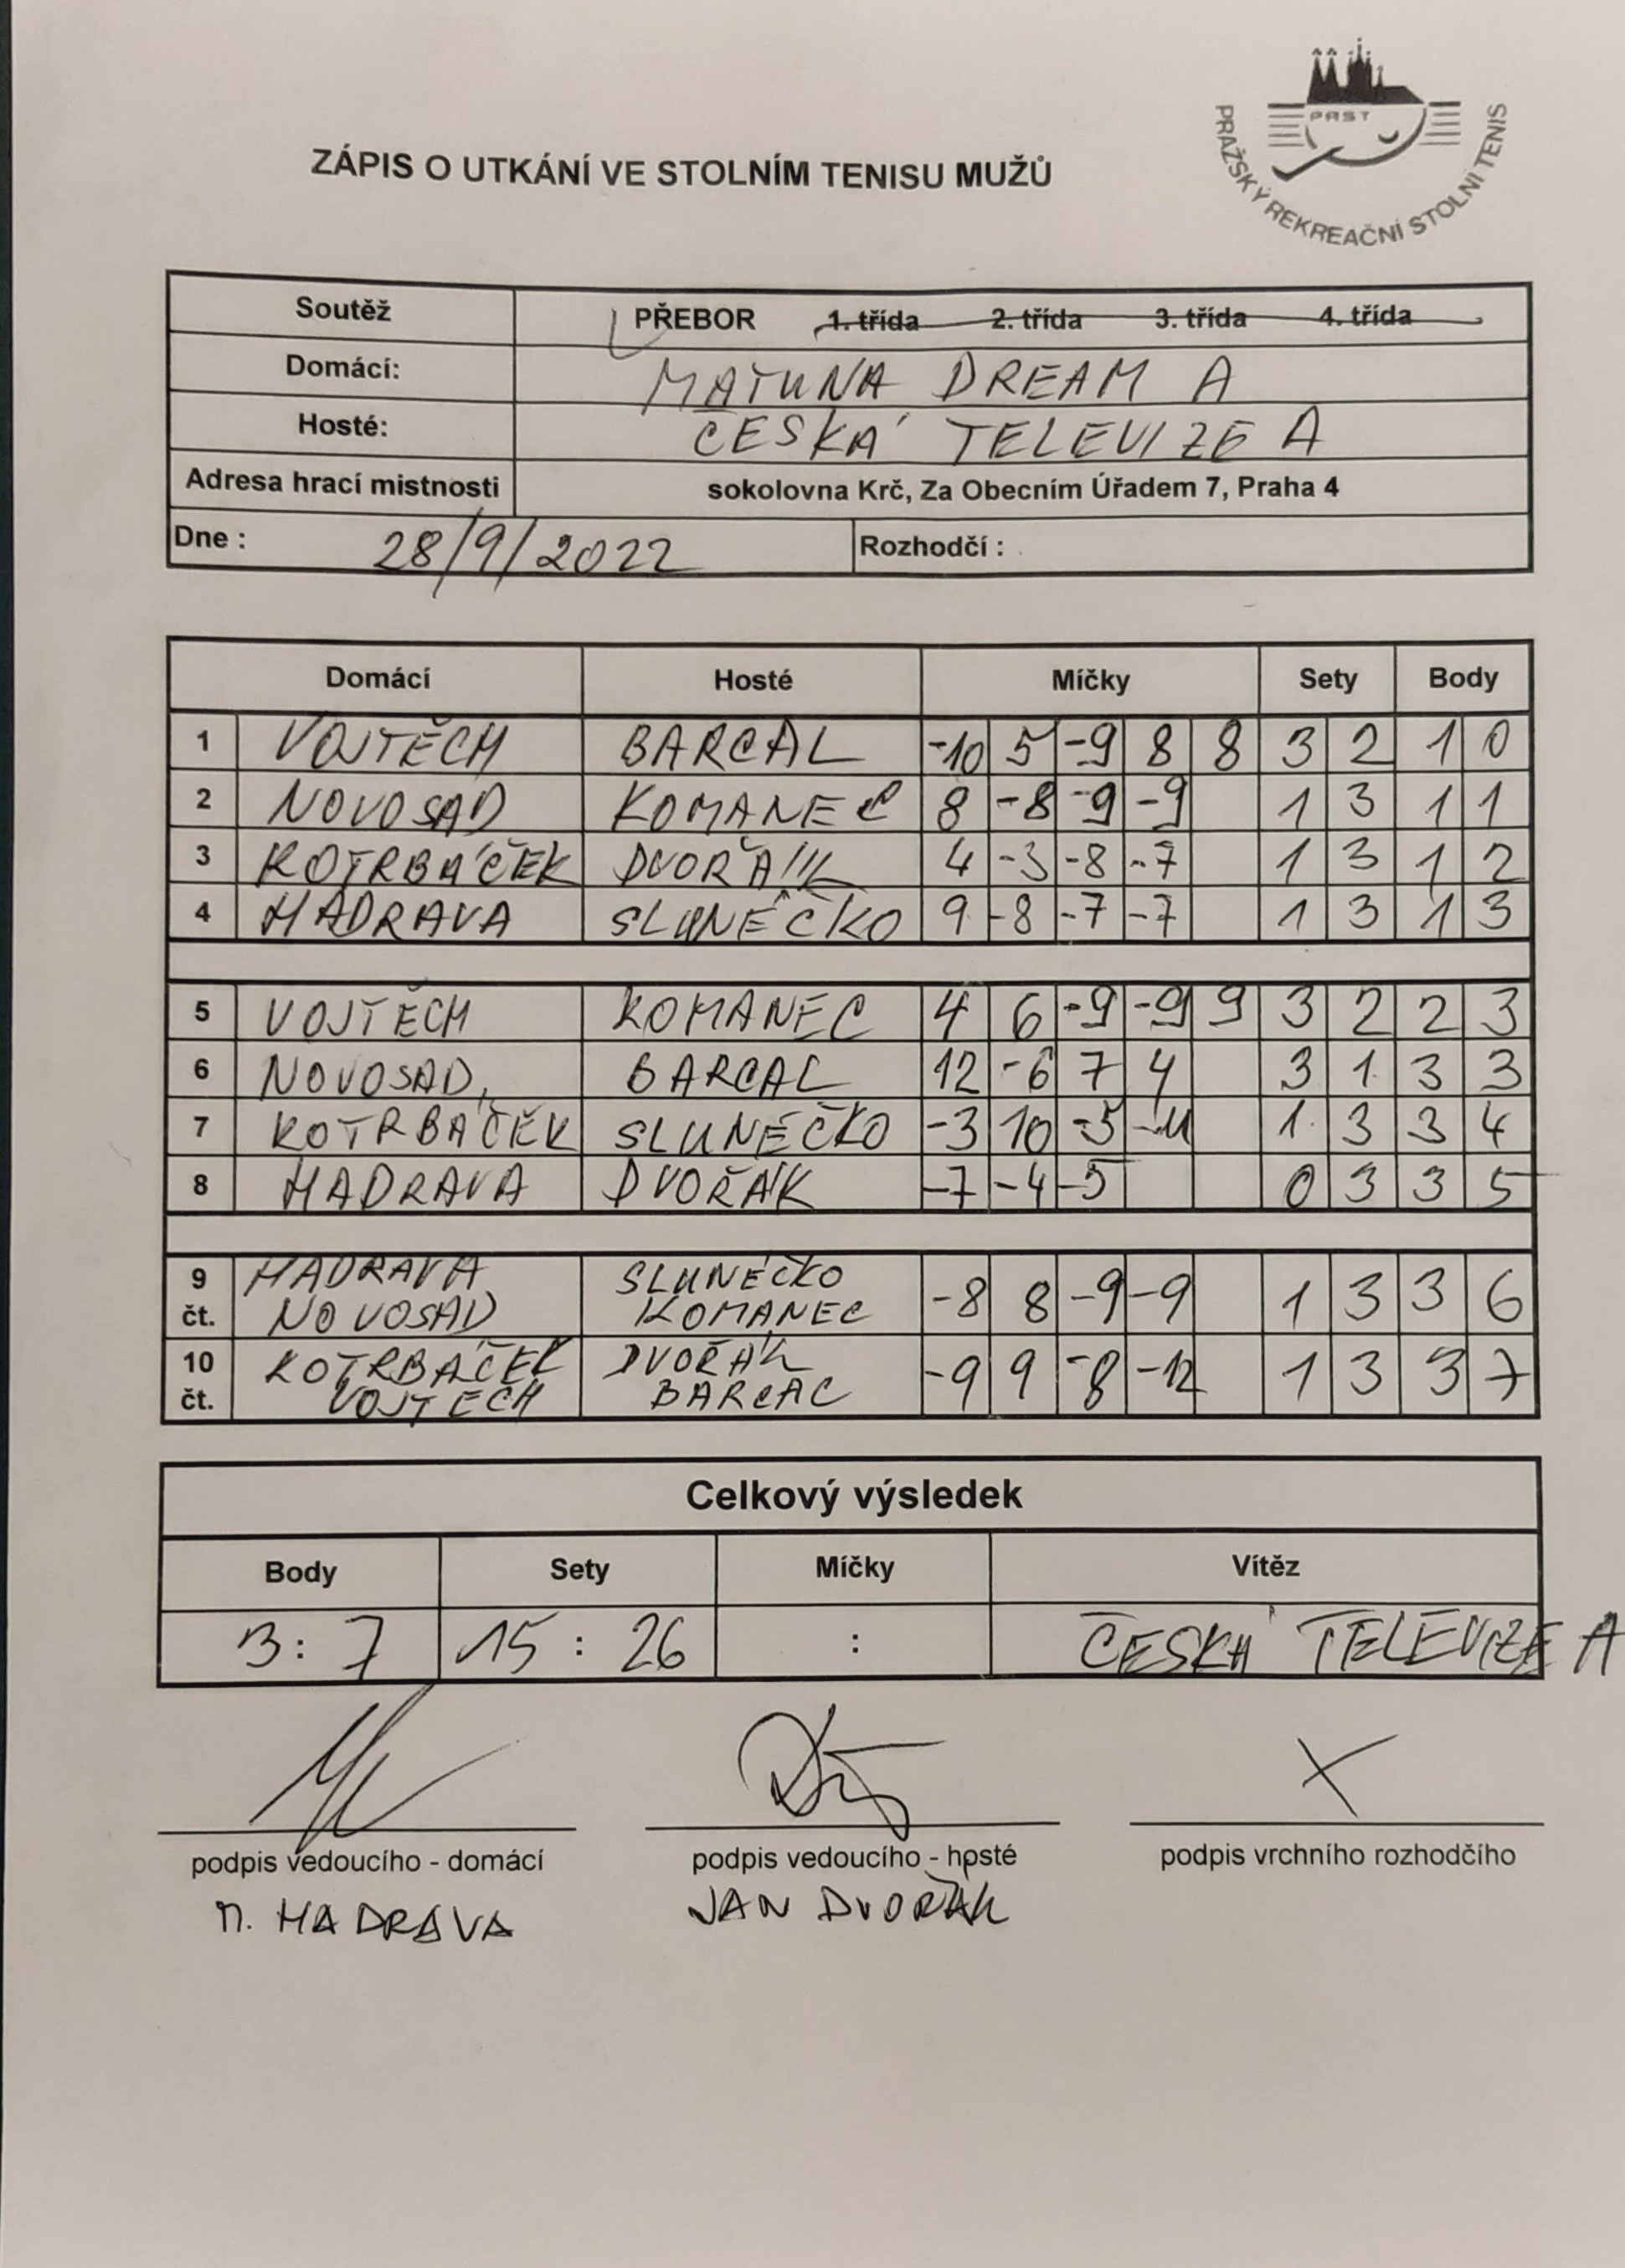 PRST
PRAŽSKÝ REKREAČNÍ STOLNÍ TENIS
ZÁPIS O UTKÁNÍ VE STOLNÍM TENISU MUŽŮ
Soutěž PŘEBOR 1. třída 2. třída 3. třída 4. třída
Domácí: MAŤUNA DREAM A
Hosté: ČESKÁ TELEVIZE A
Adresa hrací mistnosti sokolovna Krč, Za Obecním Úřadem 7, Praha 4
Dne : 28/9/2022 Rozhodčí :
Domácí Hosté Míčky Sety Body
1 VOJTĚCH BARCAL -10 5 -9 8 8 3 2 1 0
2 NOVOSAD KOMANEC 8 -8 -9 -9 1 3 1 1
3 KOTRBÁČEK DVOŘÁK 4 -3 -8 -7 1 3 1 2
4 HADRAVA SLUNÉČKO 9 -8 -7 -7 1 3 1 3
5 VOJTĚCH KOMANEC 4 6 -9 -9 9 3 2 2 3
6 NOVOSAD BARCAL 12 -6 7 4 3 1 3 3
7 KOTRBÁČEK SLUNÉČKO -3 10 -5 -11 1 3 3 4
8 HADRAVA DVOŘÁK -7 -4 -5 0 3 3 5
9 HADRAVA SLUNÉČKO
čt. NOVOSAD KOMANEC -8 8 -9 -9 1 3 3 6
10 KOTRBÁČEK DVOŘÁK
čt. VOJTĚCH BARCAL -9 9 -8 -12 1 3 3 7
Celkový výsledek
Body Sety Míčky Vítěz
3 : 7 15 : 26 : ČESKÁ TELEVIZE A
podpis vedoucího - domácí podpis vedoucího - hosté podpis vrchního rozhodčího
M. HADRAVA JAN DVOŘÁK